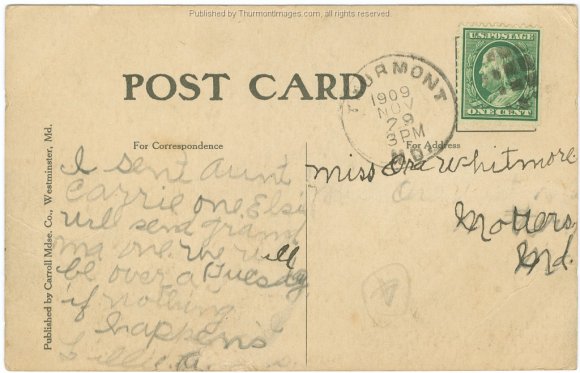 Published by Thurmontimages.com, all rights reserved.
U.S. POSTAGE
ONE CENT
POST CARD
THURMONT
1909
NOV
29
3 PM
MD.
For Correspondence
For Address
Published by Carroll Mdse. Co., Westminster, Md.
I sent Aunt
Carrie one. Elsi
will send grand
ma one. we will
be over a Tuesday
if nothing
happens
Miss Ora Whitmore
Motters
Md.